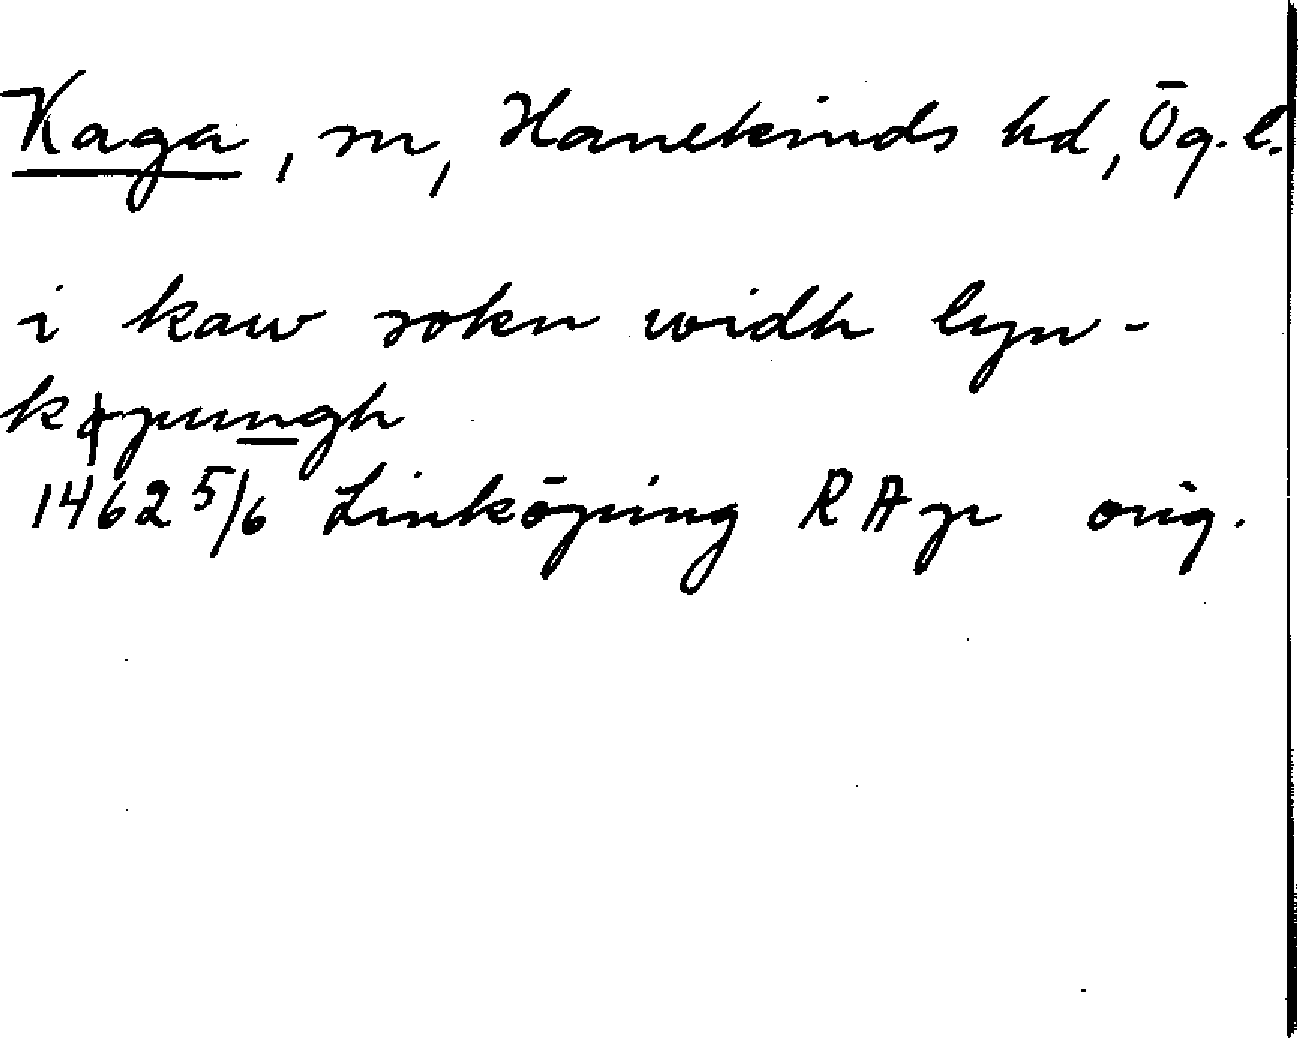 Kaga, sn, Hanekinds hd, Ög.l.
i kaw sokn widh lyn-
køpungh
1462 5/6 Linköping RAp orig.